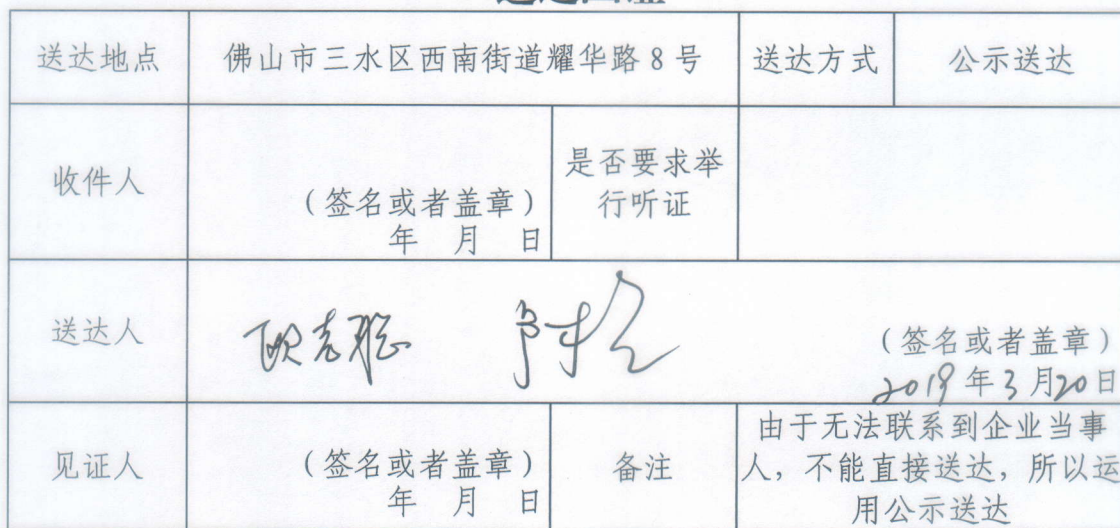 送达地点 佛山市三水区西南街道耀华路8号 送达方式 公示送达
收件人
(签名或者盖章)
年 月 日
是否要求举
行听证
送达人
(签名或者盖章)
2019年3月20日
见证人
(签名或者盖章)
年 月 日
备注
由于无法联系到企业当事
人,不能直接送达,所以运
用公示送达